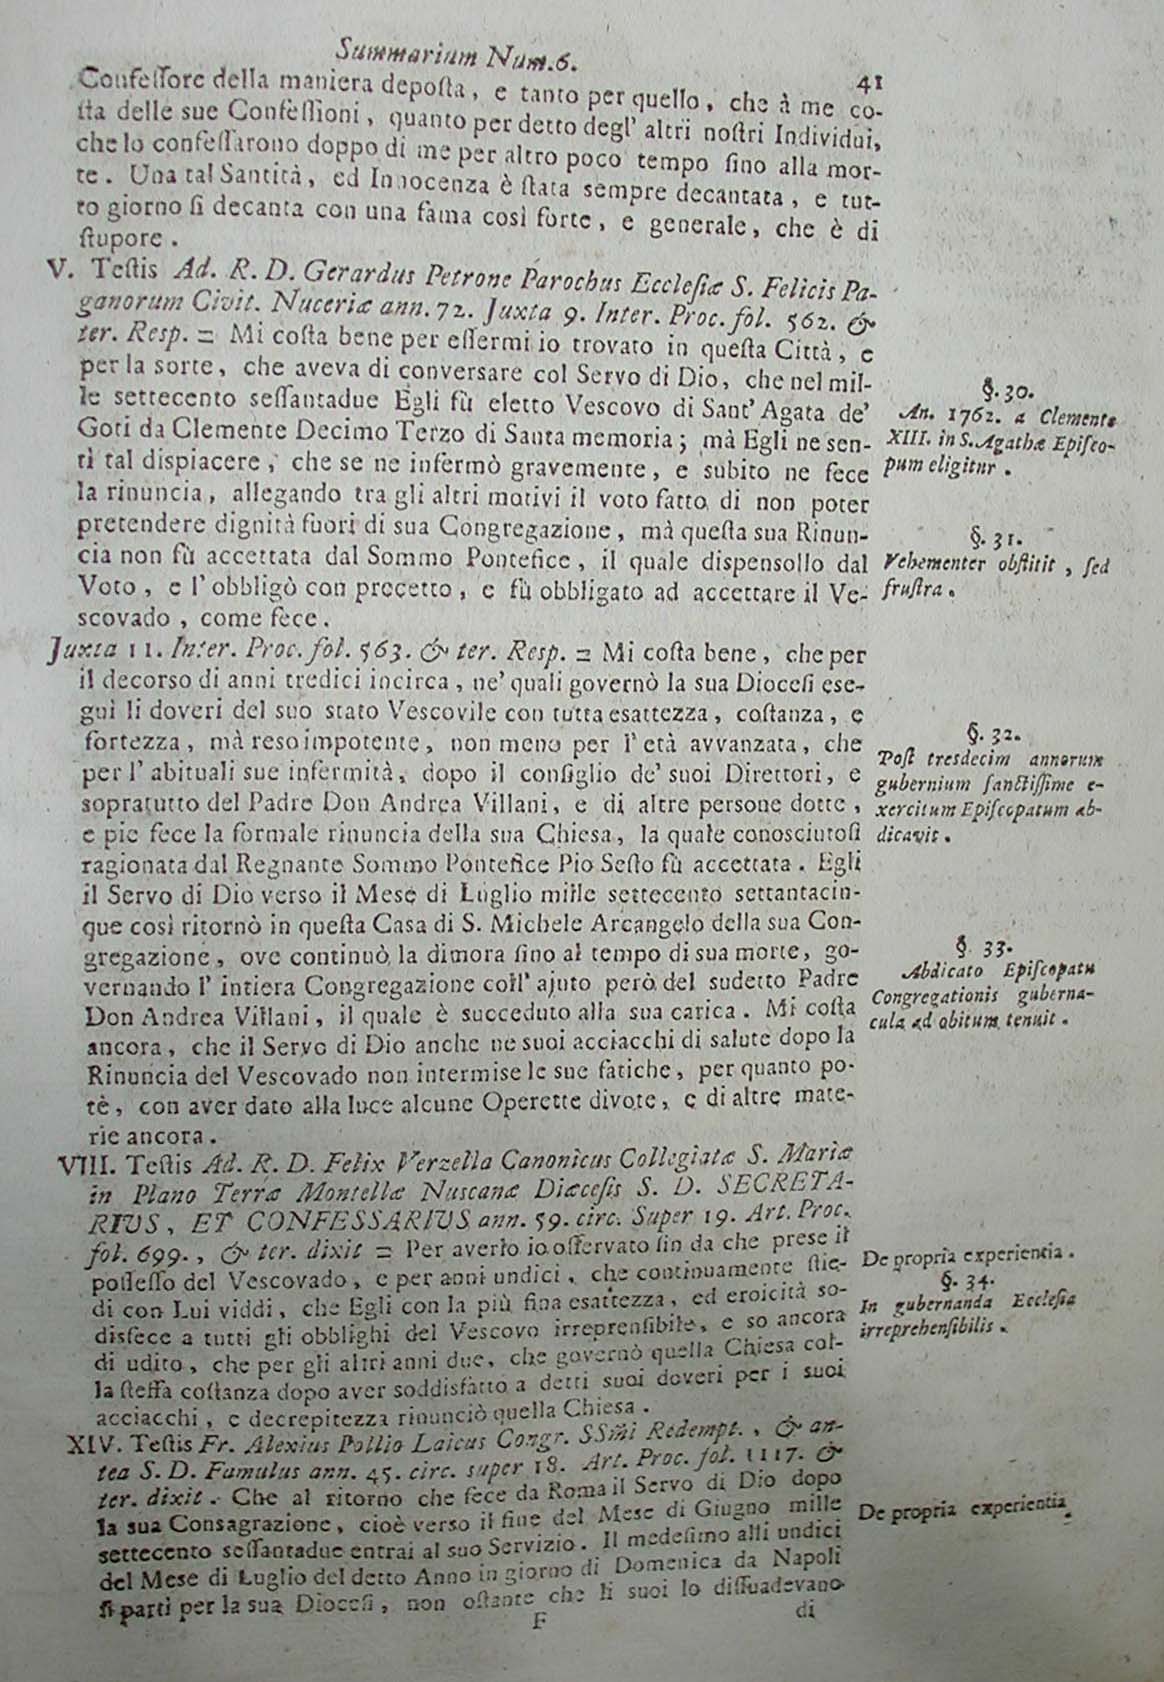 Summarium Num.6.
41
Confeſſore della maniera depoſta, e tanto per quello, che à me co-
ſta delle sue Confeſſioni, quanto per detto degl' altri noſtri Individui,
che lo confeſſarono doppo di me per altro poco tempo ſino alla mor-
te. Una tal Santità, ed Innocenza è ſtata sempre decantata, e tut-
to giorno ſi decanta con una fama così forte, e generale, che è di
ſtupore.
V. Teſtis Ad. R. D. Gerardus Petrone Parochus Eccleſiæ S. Felicis Pa-
ganorum Civit. Nuceriæ ann. 72. Juxta 9. Inter. Proc. fol. 562. &
ter. Resp. = Mi coſta bene per eſſermi io trovato in queſta Città, e
per la sorte, che aveva di conversare col Servo di Dio, che nel mil-
le settecento seſſantadue Egli fù eletto Vescovo di Sant' Agata de'
Goti da Clemente Decimo Terzo di Santa memoria; mà Egli ne sen-
tì tal dispiacere, che se ne infermò gravemente, e subito ne fece
la rinuncia, allegando tra gli altri motivi il voto fatto di non poter
pretendere dignità fuori di sua Congregazione, mà queſta sua Rinun-
cia non fù accettata dal Sommo Pontefice, il quale dispensollo dal
Voto, e l' obbligò con precetto, e fù obbligato ad accettare il Ve-
scovado, come fece.
§. 30.
An. 1762. a Clemente
XIII. in S. Agathæ Epiſco-
pum eligitur.
§. 31.
Vehementer obſtitit, ſed
fruſtra.
Juxta 11. Inter. Proc. fol. 563. & ter. Resp. = Mi coſta bene, che per
il decorso di anni tredici incirca, ne' quali governò la sua Dioceſi ese-
guì li doveri del suo stato Vescovile con tutta esattezza, coſtanza, e
fortezza, mà reso impotente, non meno per l' età avvanzata, che
per l' abituali sue infermità, dopo il conſiglio de' suoi Direttori, e
sopratutto del Padre Don Andrea Villani, e di altre persone dotte,
e pie fece la formale rinuncia della sua Chiesa, la quale conosciutoſi
ragionata dal Regnante Sommo Pontefice Pio Seſto fù accettata. Egli
il Servo di Dio verso il Mese di Luglio mille settecento settantacin-
que così ritornò in queſta Casa di S. Michele Arcangelo della sua Con-
gregazione, ove continuò la dimora ſino al tempo di sua morte, go-
vernando l' intiera Congregazione coll' ajuto però del sudetto Padre
Don Andrea Villani, il quale è succeduto alla sua carica. Mi coſta
ancora, che il Servo di Dio anche ne suoi acciacchi di salute dopo la
Rinuncia del Vescovado non intermise le sue fatiche, per quanto po-
tè, con aver dato alla luce alcune Operette divote, e di altre mate-
rie ancora.
§. 32.
Poſt tresdecim annorum
gubernium ſanctiſſime e-
xercitum Epiſcopatum ab-
dicavit.
§. 33.
Abdicato Epiſcopatu
Congregationis guberna-
cula ad obitum tenuit.
VIII. Teſtis Ad. R. D. Felix Verzella Canonicus Collegiatæ S. Mariæ
in Plano Terræ Montellæ Nuscanæ Diæcesis S. D. SECRETA-
RIUS, ET CONFESSARIUS ann. 59. circ. Super 19. Art. Proc.
fol. 699., & ter. dixit = Per averlo io oſſervato ſin da che prese il
poſſeſſo del Vescovado, e per anni undici, che continuamente ſtie-
di con Lui viddi, che Egli con la più fina esattezza, ed eroicità so-
disfece a tutti gli obblighi del Vescovo irreprenſibile, e so ancora
di udito, che per gli altri anni due, che governò quella Chiesa col-
la ſteſſa coſtanza dopo aver soddisfatto a detti suoi doveri per i suoi
acciacchi, e decrepitezza rinunciò quella Chiesa.
De propria experientia.
§. 34.
In gubernanda Eccleſia
irreprehenſibilis.
XIV. Teſtis Fr. Alexius Pollio Laicus Congr. SSm̃i Redempt., & an-
tea S. D. Famulus ann. 45. circ. super 18. Art. Proc. fol. 1117. &
ter. dixit. Che al ritorno che fece da Roma il Servo di Dio dopo
la sua Consagrazione, cioè verso il fine del Mese di Giugno mille
settecento seſſantadue entrai al suo Servizio. Il medeſimo alli undici
del Mese di Luglio del detto Anno in giorno di Domenica da Napoli
ſi partì per la sua Dioceſi, non oſtante che li suoi lo diſſuadevano
De propria experientia.
F
di